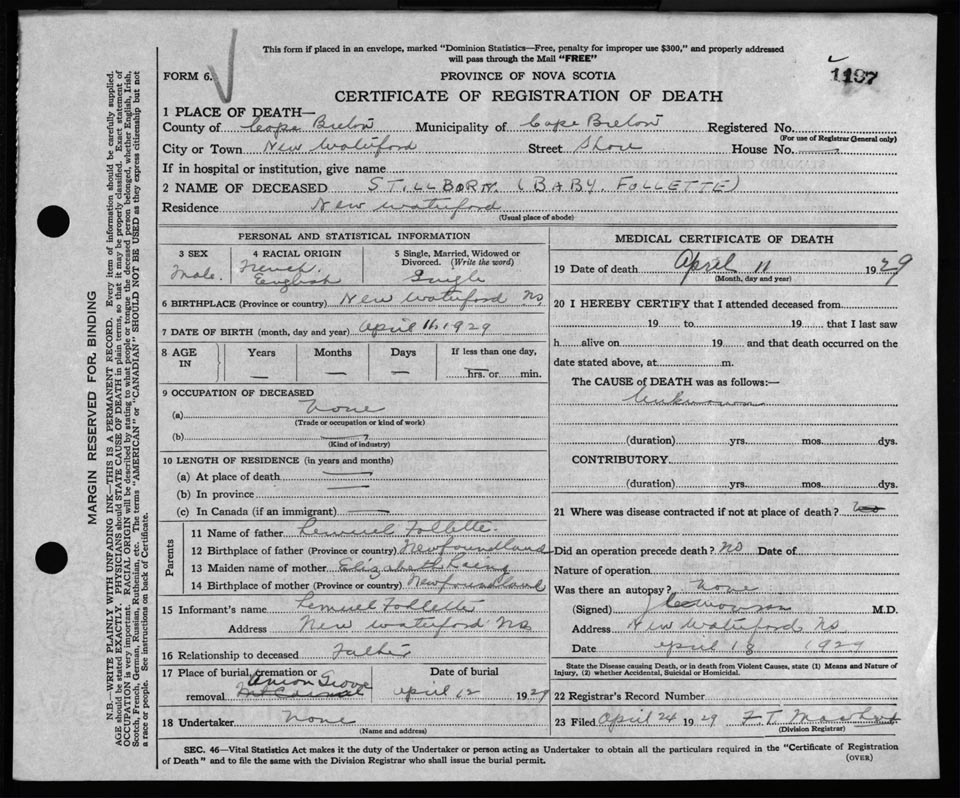 This form if placed in an envelope, marked "Dominion Statistics—Free, penalty for improper use $300," and properly addressed
will pass through the Mail "FREE"
FORM 6.
PROVINCE OF NOVA SCOTIA
1197
CERTIFICATE OF REGISTRATION OF DEATH
1 PLACE OF DEATH—
County of Cape Breton Municipality of Cape Breton Registered No.
(For use of Registrar General only)
City or Town New Waterford Street Shore House No.
If in hospital or institution, give name
2 NAME OF DECEASED STILLBORN. (BABY. FOLLETTE)
Residence New Waterford
(Usual place of abode)
PERSONAL AND STATISTICAL INFORMATION
3 SEX 4 RACIAL ORIGIN 5 Single, Married, Widowed or
Divorced. (Write the word)
Male. French. English Single
6 BIRTHPLACE (Province or country) New Waterford NS
7 DATE OF BIRTH (month, day and year) April 11, 1929
8 AGE IN Years Months Days If less than one day,
— — — hrs. or min.
9 OCCUPATION OF DECEASED
(a) None
(Trade or occupation or kind of work)
(b)
(Kind of industry)
10 LENGTH OF RESIDENCE (in years and months)
(a) At place of death
(b) In province
(c) In Canada (if an immigrant)
Parents
11 Name of father Lemuel Follette.
12 Birthplace of father (Province or country) Newfoundland
13 Maiden name of mother Elizabeth
14 Birthplace of mother (Province or country) Newfoundland
15 Informant's name Lemuel Follette
Address New Waterford NS
16 Relationship to deceased Father
17 Place of burial, cremation or Date of burial
Union Grove
removal April 12 1929
18 Undertaker None
(Name and address)
MEDICAL CERTIFICATE OF DEATH
19 Date of death April 11 1929
(Month, day and year)
20 I HEREBY CERTIFY that I attended deceased from
19 to 19 that I last saw
h alive on 19 and that death occurred on the
date stated above, at m.
The CAUSE of DEATH was as follows:—
Unknown
(duration) yrs. mos. dys.
CONTRIBUTORY
(duration) yrs. mos. dys.
21 Where was disease contracted if not at place of death?
Did an operation precede death? No Date of
Nature of operation
Was there an autopsy? None
(Signed) M.D.
Address New Waterford NS
Date April 18 1929
State the Disease causing Death, or in death from Violent Causes, state (1) Means and Nature of
Injury, (2) whether Accidental, Suicidal or Homicidal.
22 Registrar's Record Number
23 Filed April 24 1929 F.T.
(Division Registrar)
SEC. 46—Vital Statistics Act makes it the duty of the Undertaker or person acting as Undertaker to obtain all the particulars required in the "Certificate of Registration
of Death" and to file the same with the Division Registrar who shall issue the burial permit.
(OVER)
MARGIN RESERVED FOR BINDING
N.B.—WRITE PLAINLY WITH UNFADING INK—THIS IS A PERMANENT RECORD. Every item of information should be carefully supplied.
AGE should be stated EXACTLY. PHYSICIANS should STATE CAUSE OF DEATH in plain terms, so that it may be properly classified. Exact statement of
OCCUPATION is very important. RACIAL ORIGIN will be described by stating to what people or tongue the deceased person belonged, whether English, Irish,
Scotch, French, German, Russian, Ruthenian, etc. The terms "AMERICAN" or "CANADIAN" SHOULD NOT BE USED as they express citizenship but not
a race or people. See instructions on back of Certificate.